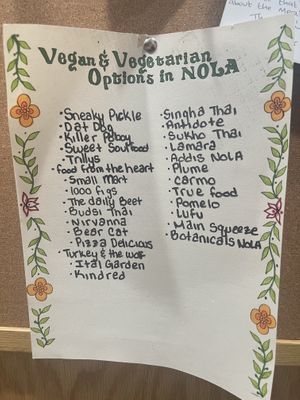 about the Mora
Th
Vegan & Vegetarian
Options in NOLA
• Sneaky Pickle
• Dat Dog
• Killer Poboy
• Sweet Soulfood
• Trilly's
• food from the heart
• Small Mart
• 1000 figs
• The daily Beet
• Budsi Thai
• Nirvanna
• Bear Cat
• Pizza Delicious
• Turkey & the wolf
• Ital Garden
• Kindred
• Singha Thai
• Antidote
• Sukho Thai
• Lamara
• Addis NOLA
• Plume
• Carmo
• True food
• Pomelo
• Lufu
• Main Squeeze
• Botanicals NOLA